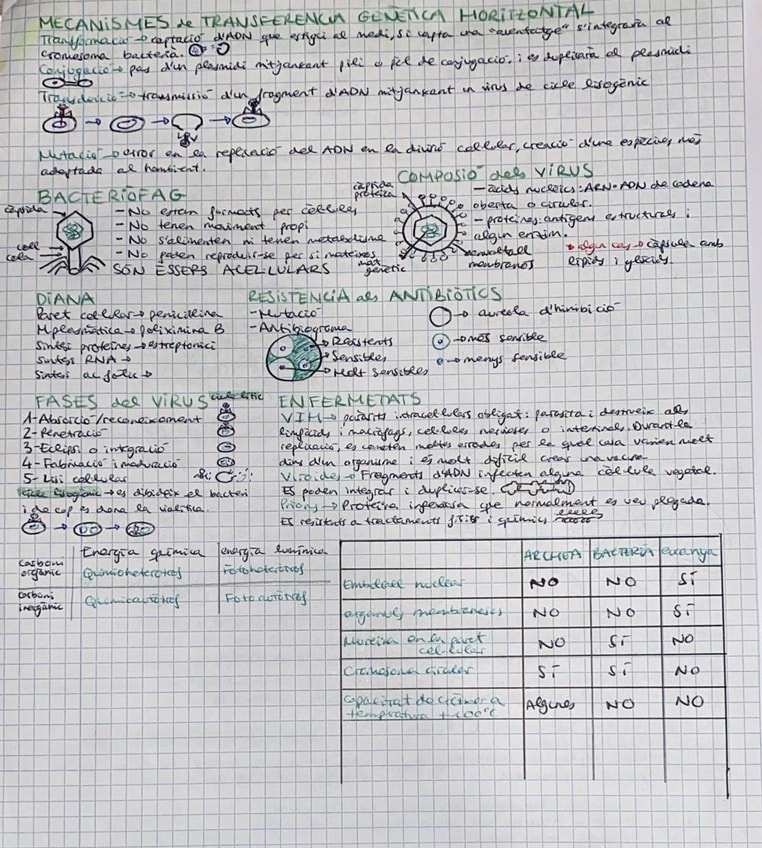 MECANISMES de TRANSFERENCIA GENÈTICA HORITZONTAL
Transformació → captació d'ADN que estigui al medi, si capta una "aventatge" s'integrarà al
cromosoma bacterià.
Conjugació → pas d'un plasmidi mitjançant pili o pèl de conjugació. i es duplicarà el plasmidi
Transducció → transmissió d'un fragment d'ADN mitjançant un virus de cicle lisogènic
Mutació → error en la replicació del ADN en la divisió cel·lular, creació d'una espècies més
adaptada al
BACTERIÒFAG
càpsida
coll
cola
- No estan formats per cèl·lules
- No tenen moviment propi
- No s'alimenten ni tenen metabolisme
- No poden reproduir-se per si mateixos
SÓN ÈSSERS ACEL·LULARS
COMPOSIÓ dels VIRUS
càpsida
proteica
mat
genètic
membranós
- àcids nucleics: ARN o ADN de cadena
oberta o circular.
- proteïnes: antígens estructurals i
algun enzim.
algun cas → càpsula amb
lípids i glúcids.
DIANA
Paret cel·lular → penicilina
M. plasmàtica → polimixina B
Síntesi proteïnes → estreptonici
Síntesi RNA →
Síntesi ac. fòlic →
RESISTENCIA als ANTIBIÒTICS
- Mutació
- Antibiograma
→ Resistents
→ Sensibles
→ Molt sensibles
→ aureola d'hinibició
→ més sensible
→ menys sensible
FASES del VIRUS cicle lític
1- Absorció/reconeixement
2- Penetració
3- Eclipsi o integració
4- Fabricació i maduració
5- Lisi cel·lular
Cicle lisogènic → es divideix el bacteri
i de cop es dona la
ENFERMETATS
VIH → paràsits intracel·lulars obligat: parasita i destrueix als
limfòcids i macròfags, cèl·lules nervioses o intestinals. Durant la
replicació, es cometen moltes errades per la qual cosa varien molt
dins d'un organisme i és molt difícil crear una vacuna
Viroides → Fragments d'ADN infecten alguna cèl·lula vegetal.
Es poden integrar i duplicar-se.
Prions → Proteïna infecciosa que normalment es veu plegada.
És resistents a tractaments físics i químics
Energia química
energia lumínica
carboni
orgànic
Quimioheteròtrofs
Fotoheteròtrofs
carboni
inorgànic
Quimioautòtrofs
Fotoautòtrofs
ARCHEA BACTERIA eucarya
Embolcall nuclear NO NO SÍ
orgànuls membranosos NO NO SÍ
Mureïna en la paret
cel·lular NO SÍ NO
Cromosoma circular SÍ SÍ NO
Capacitat de créixer a
temperatura +100ºC Algunes NO NO